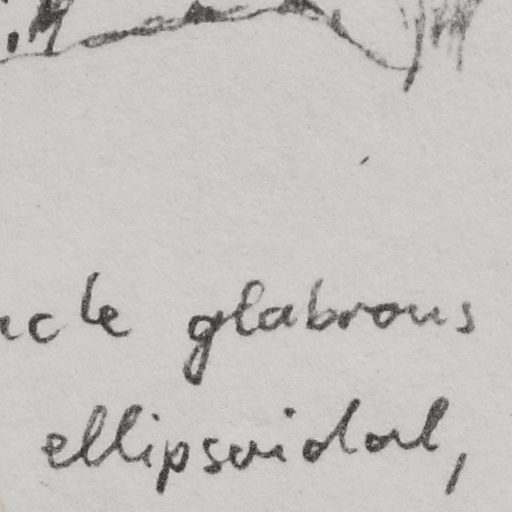 glabrous
ellipsoidal,